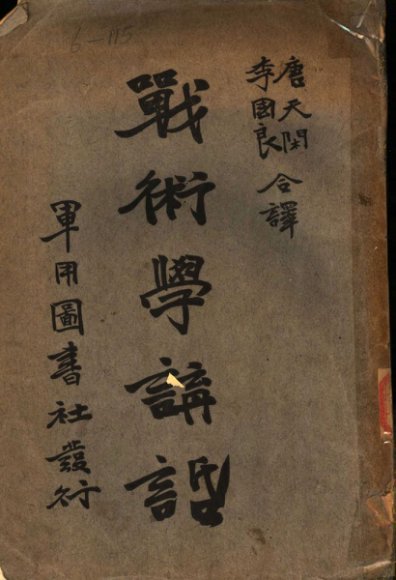 6-115
唐天閑
李國良
合譯
戰術學講話
軍用圖書社發行